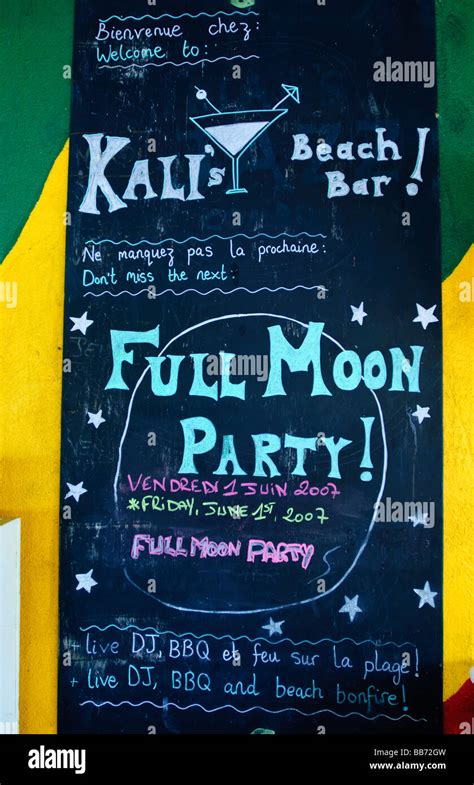 Bienvenue chez:
Welcome to:
KALI's Beach Bar!
Ne manquez pas la prochaine:
Don't miss the next:
FULL MOON
PARTY!
VENDREDI 1 JUIN 2007
*FRIDAY, JUNE 1ST, 2007
FULL MOON PARTY
+ live DJ, BBQ et feu sur la plage!
+ live DJ, BBQ and beach bonfire!
alamy
Image ID: BB72GW
www.alamy.com